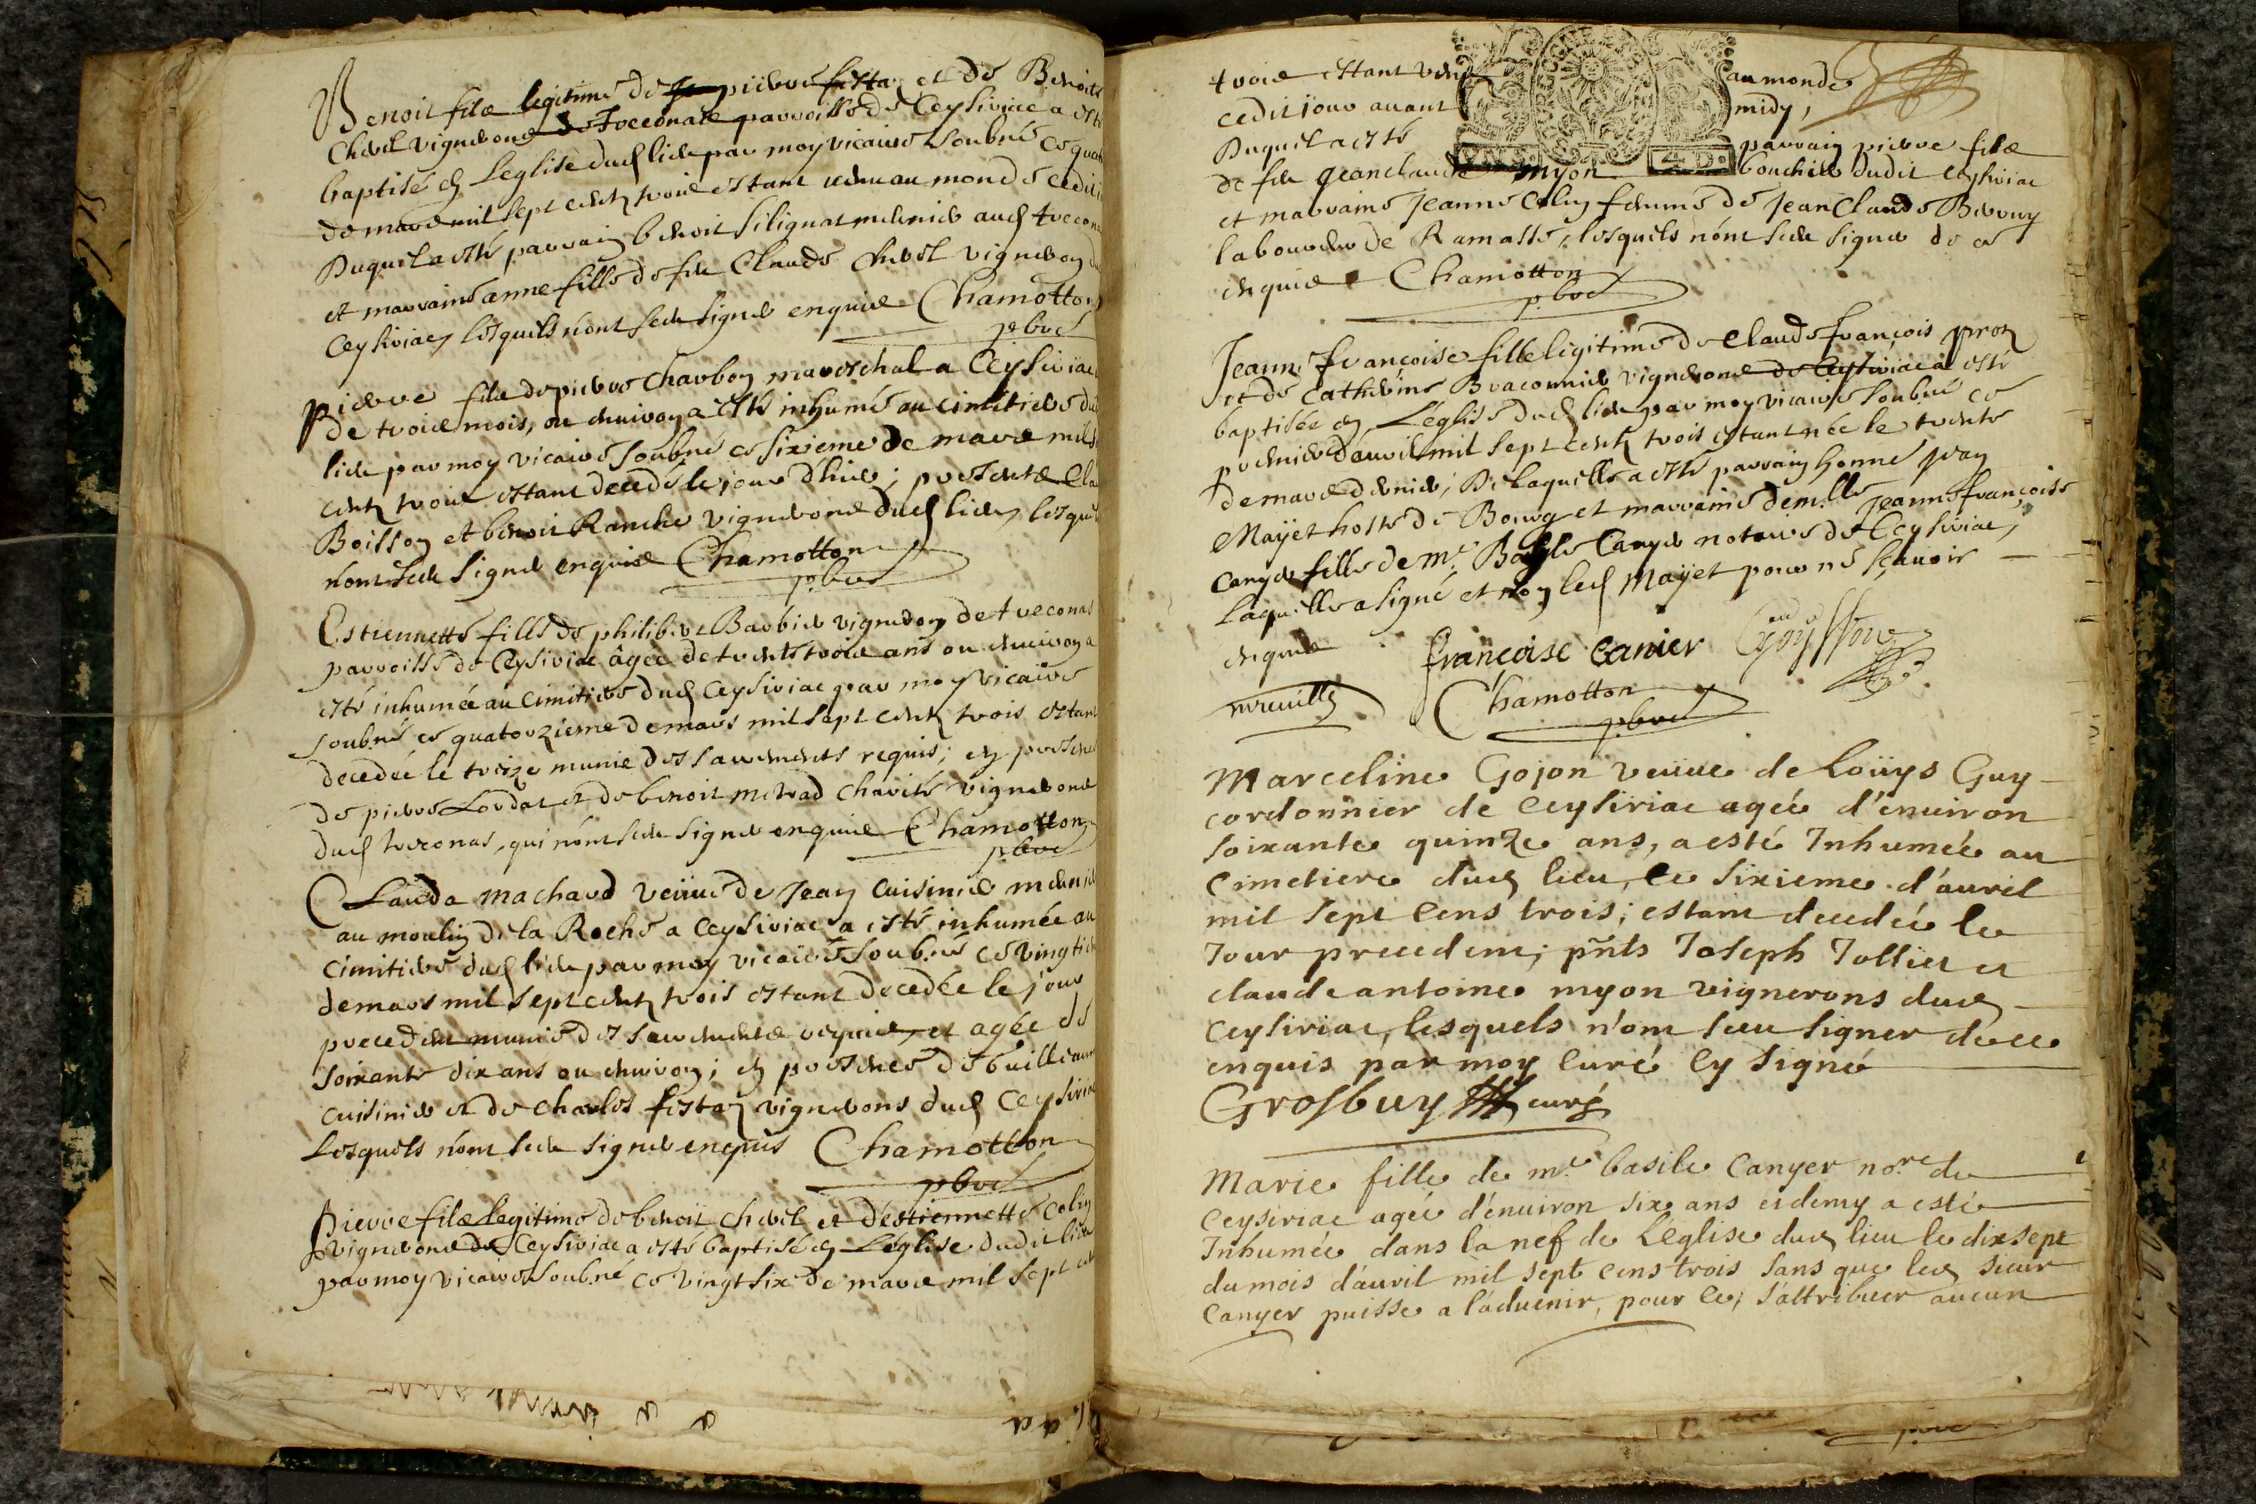 Benoit fils legitime de pierre festaz et de Benoite
Chevel vignerons de Treconas parroisse de Ceysiriac a esté
baptisé en Leglise dud lieu par moy vicaire soubné ce quat
de mars mil sept centz trois estant venu au monde cedit
Duquel a esté parrain benoit silignat meunier aud trecon
et marraine anne fille de feu Claude Chevel vigneron du
Ceysiriac, lesquels nont sceu signer enquis Chamotton
pbre
Pierre fils de pierre Charbon mareschal a Ceysiriac
de trois mois, ou environ a esté inhumé au cimetiere dud
lieu par moy vicaire soubné ce sixieme de mars mil s
centz trois estant decedé le jour d'hier; presents Cla
Boisson et benoit Ranche vignerons dud lieu, lesquel
n'ont sceu signer enquis Chamotton
pbre
Estiennette fille de philibert Barbier vigneron de treconas
parroisse de Ceysiriac âgée de trente trois ans ou environ a
esté inhumée au cimetiere dud Ceysiriac par moy vicaire
soubné ce quatorzieme de mars mil sept centz trois estant
decedée le treize munie des sacrements requis; en presence
de pierre Lordat et de benoit mitrad Charité vignerons
dud treconas, qui n'ont sceu signer enquis Chamotton
pbre
Clauda machard veüue de Jean Cuisinier meunier
au moulin de la Roche a Ceysiriac a esté inhumée au
cimitiere dud lieu par moy vicaire soubné ce vingtie
de mars mil sept centz trois estant decedée le jour
precedent munie des sacrements requis, et agée de
soixante dix ans ou environ; en presence de guillaume
cuisinier et de Charles festaz vignerons dud Ceysiriac
Lesquels n'ont sceu signer enquis Chamotton
pbre
Pierre fils legitime de benoit Chevel et d'estiennette Colin
vignerons de Ceysiriac a esté baptisé en L'église dudit lieu
par moy vicaire soubné ce vingt six de mars mil sept cent
trois estant venu au monde
cedit jour auant midy,
Duquel a esté parrain pierre fils
de feu Jean claude myon bouchier dudit ceysiriac
et marraine Jeanne Colin femme de Jean Claude Berony
laboureur de Ramasse, lesquels n'ont sceu signer de ce
enquis Chamotton
pbre
Jeanne françoise fille legitime de Claude françois proz
et de Catherine Braconnier vignerons de Ceysiriac a esté
baptisée en L'église dud lieu par moy vicaire soubné ce
premier d'auril mil sept centz trois estant née le trente
de mars dernier; De laquelle a esté parrain honné Jean
Mayet hoste de Bourg et marraine demlle Jeanne françoise
Canyer fille de mre Basyle Canyer notaire de Ceysiriac,
Laquelle a signé et non led Mayet pour ne sçauoir
enquis françoise Canier
Chamotton
pbre
Marceline Gojon veüue de Loüys Guy
cordonnier de ceysiriac agée d'enuiron
soixante quinze ans, a esté Inhumée au
Cimetiere dud lieu, le sixieme d'auril
mil sept Cens trois; estant decedée le
Jour precedent; pñts Joseph Jollier et
claude antoine myon vignerons dud
Ceysiriac, lesquels n'ont sceu signer de ce
enquis par moy curé cy signé
Grosbuy curé
Marie fille de mre basile Canyer nore de
Ceysiriac agée d'enuiron six ans et demy a esté
Inhumée dans la nef de L'eglise dud lieu le dix sept
du mois d'auril mil sept cens trois sans que led sieur
Canyer puisse a l'aduenir, pour ce, s'attribuer aucun